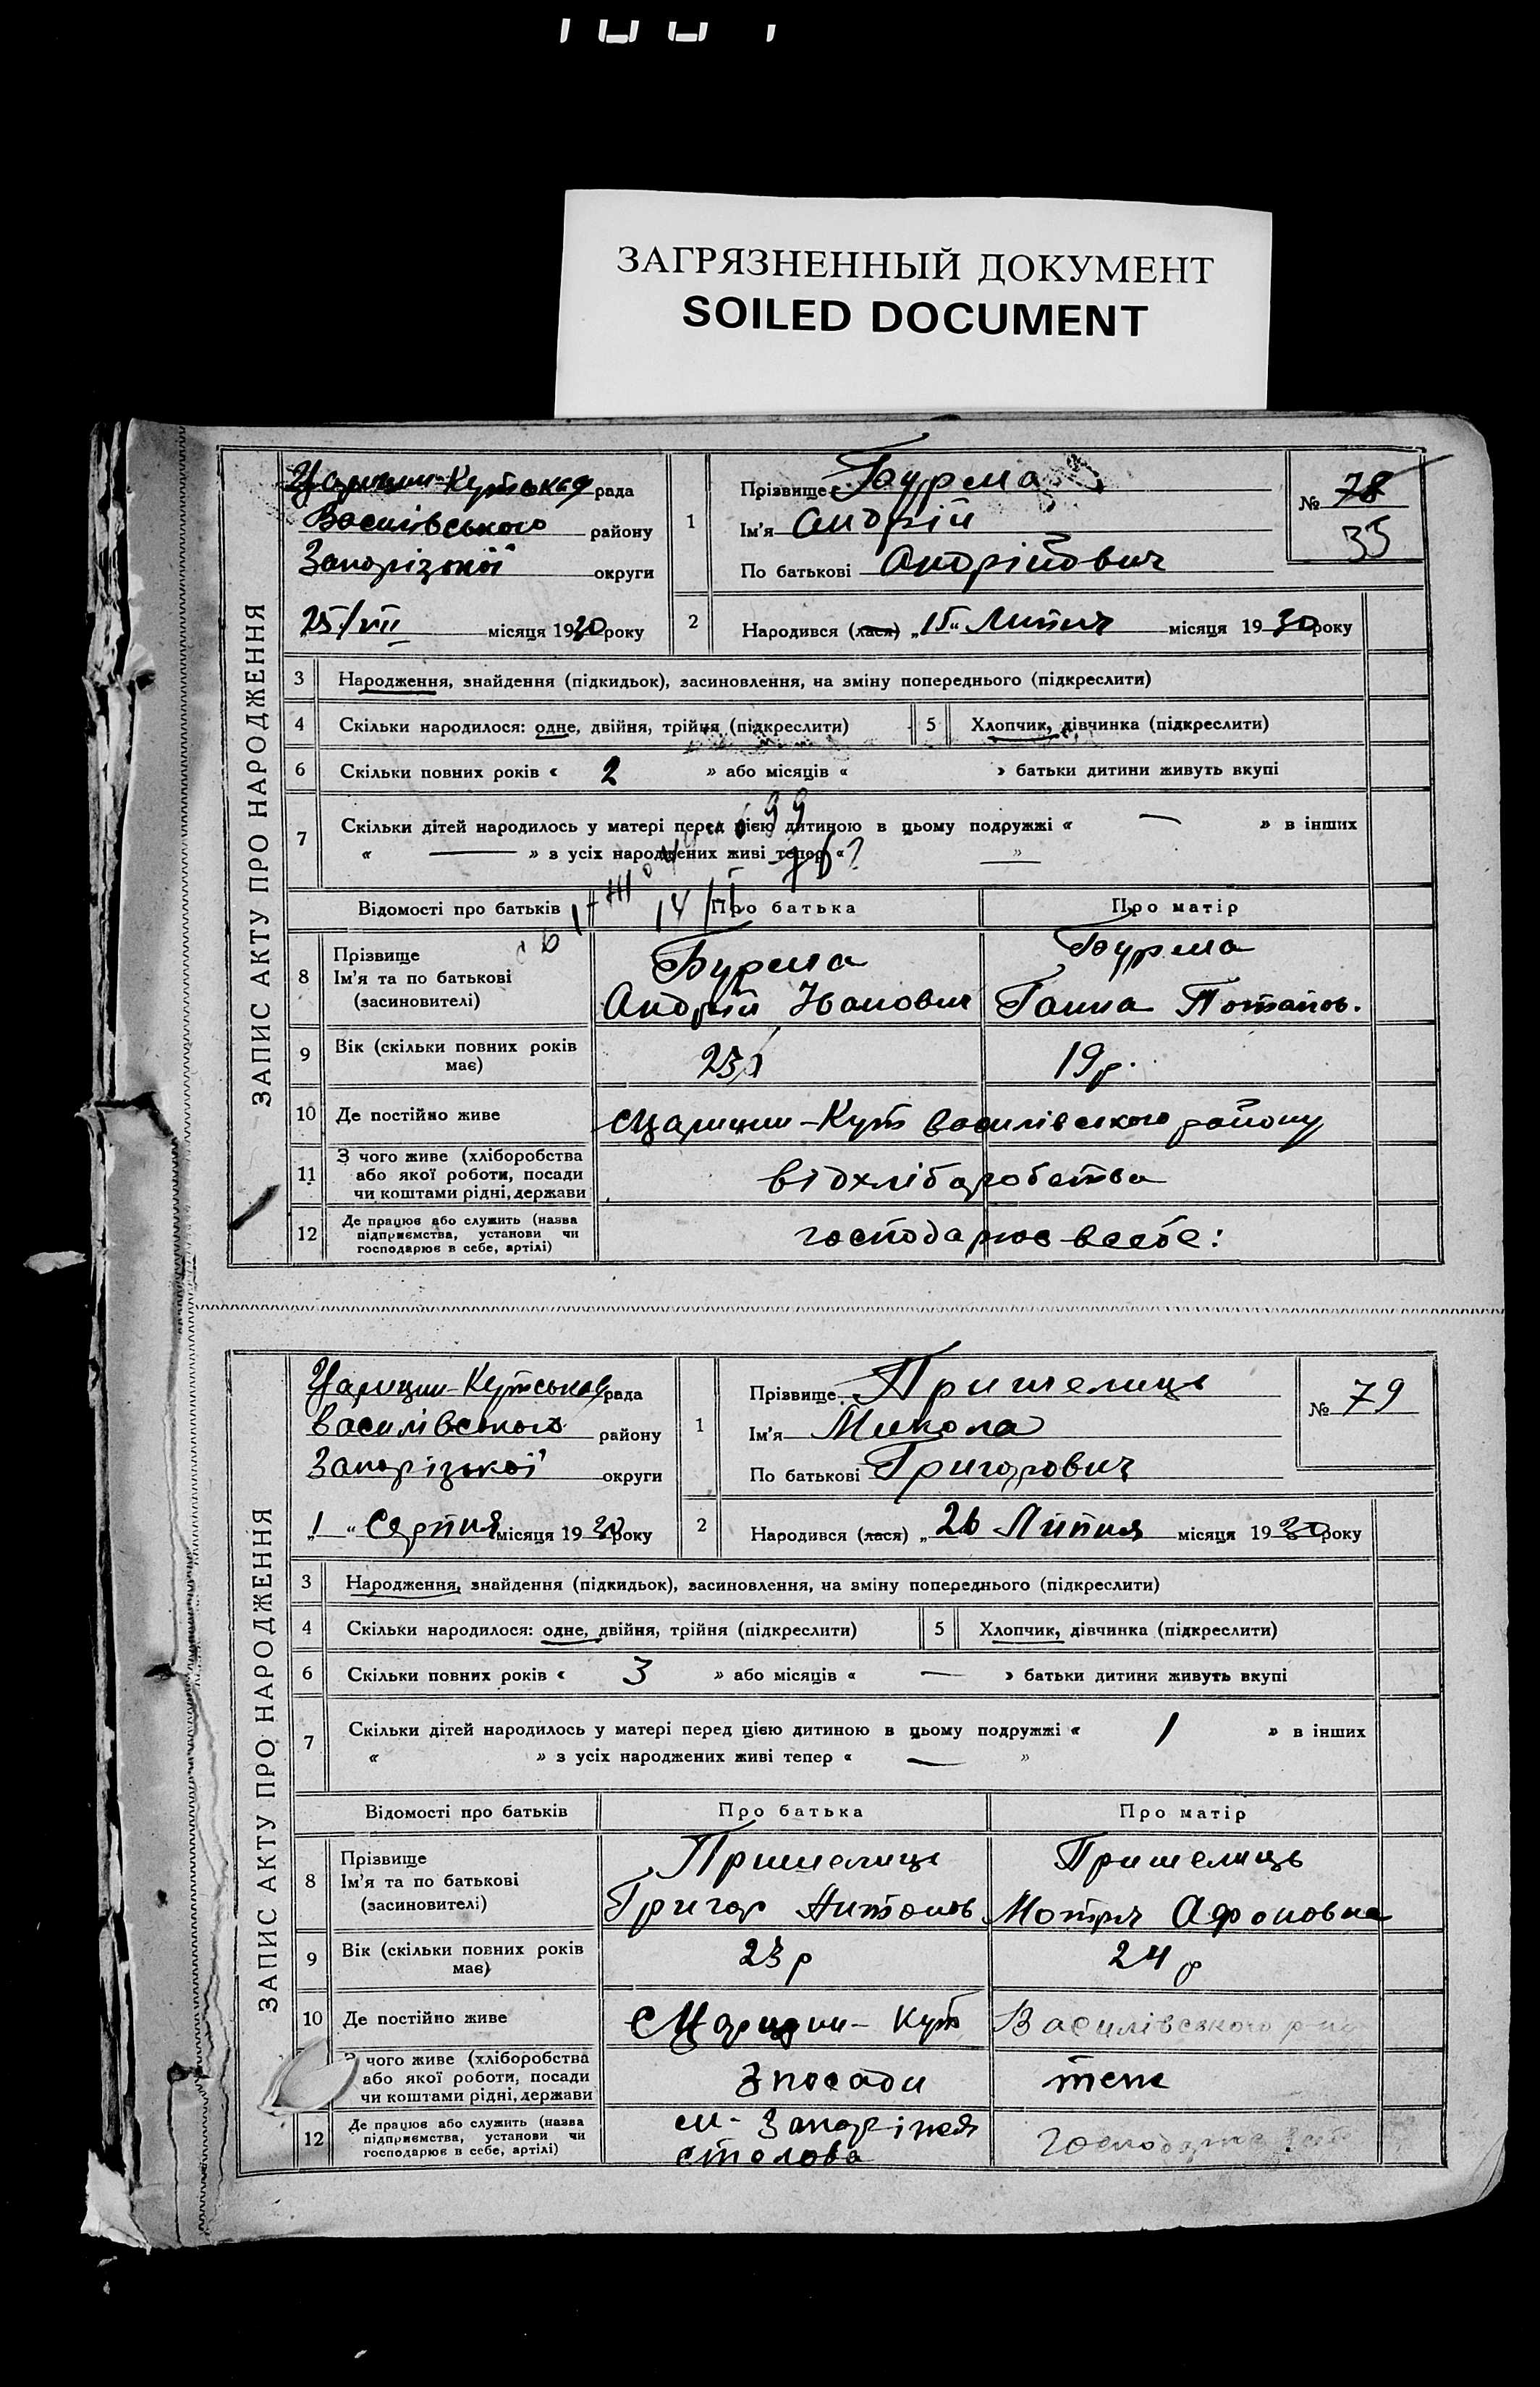 ЗАГРЯЗНЕННЫЙ ДОКУМЕНТ
SOILED DOCUMENT
ЗАПИС АКТУ ПРО НАРОДЖЕННЯ
Царицин-Кутська рада
Василівського району
Запорізької округи
25/VII місяця 1930 року
1
Прізвище Бурма
Ім'я Андрій
По батькові Андрійович
№ 78
35
2 Народився (лася) „15" Липня місяця 1930 року
3 Народження, знайдення (підкидьок), засиновлення, на зміну попереднього (підкреслити)
4 Скільки народилося: одне, двійня, трійня (підкреслити) 5 Хлопчик, дівчинка (підкреслити)
6 Скільки повних років « 2 » або місяців « » батьки дитини живуть вкупі
7 Скільки дітей народилось у матері перед цією дитиною в цьому подружжі « — » в інших
« — » з усіх народжених живі тепер « — »
Відомості про батьків Про батька Про матір
8 Прізвище
Ім'я та по батькові
(засиновителі)
Бурма
Андрій Іванович
Бурма
Ганна Потапов.
9 Вік (скільки повних років має) 23 19 р.
10 Де постійно живе с Царицин-Кут Василівського району
11 З чого живе (хліборобства
або якої роботи, посади
чи коштами рідні, держави
від хліборобства
12 Де працює або служить (назва
підприємства, установи чи
господарює в себе, артілі)
господарює в себе:
ЗАПИС АКТУ ПРО НАРОДЖЕННЯ
Царицин-Кутська рада
Василівського району
Запорізької округи
„1" Серпня місяця 1930 року
1
Прізвище Пришелиць
Ім'я Микола
По батькові Григорович
№ 79
2 Народився (лася) „26 Липня місяця 1930 року
3 Народження, знайдення (підкидьок), засиновлення, на зміну попереднього (підкреслити)
4 Скільки народилося: одне, двійня, трійня (підкреслити) 5 Хлопчик, дівчинка (підкреслити)
6 Скільки повних років « 3 » або місяців « — » батьки дитини живуть вкупі
7 Скільки дітей народилось у матері перед цією дитиною в цьому подружжі « 1 » в інших
« » з усіх народжених живі тепер « — »
Відомості про батьків Про батька Про матір
8 Прізвище
Ім'я та по батькові
(засиновителі)
Пришелиць
Григор Антонов
Пришелиць
Мотря Афоновна
9 Вік (скільки повних років має) 23 р 24 р
10 Де постійно живе с Царицин-Кут Василівського р-ну
чого живе (хліборобства
або якої роботи, посади
чи коштами рідні, держави
З посади теж
12 Де працює або служить (назва
підприємства, установи чи
господарює в себе, артілі)
столова